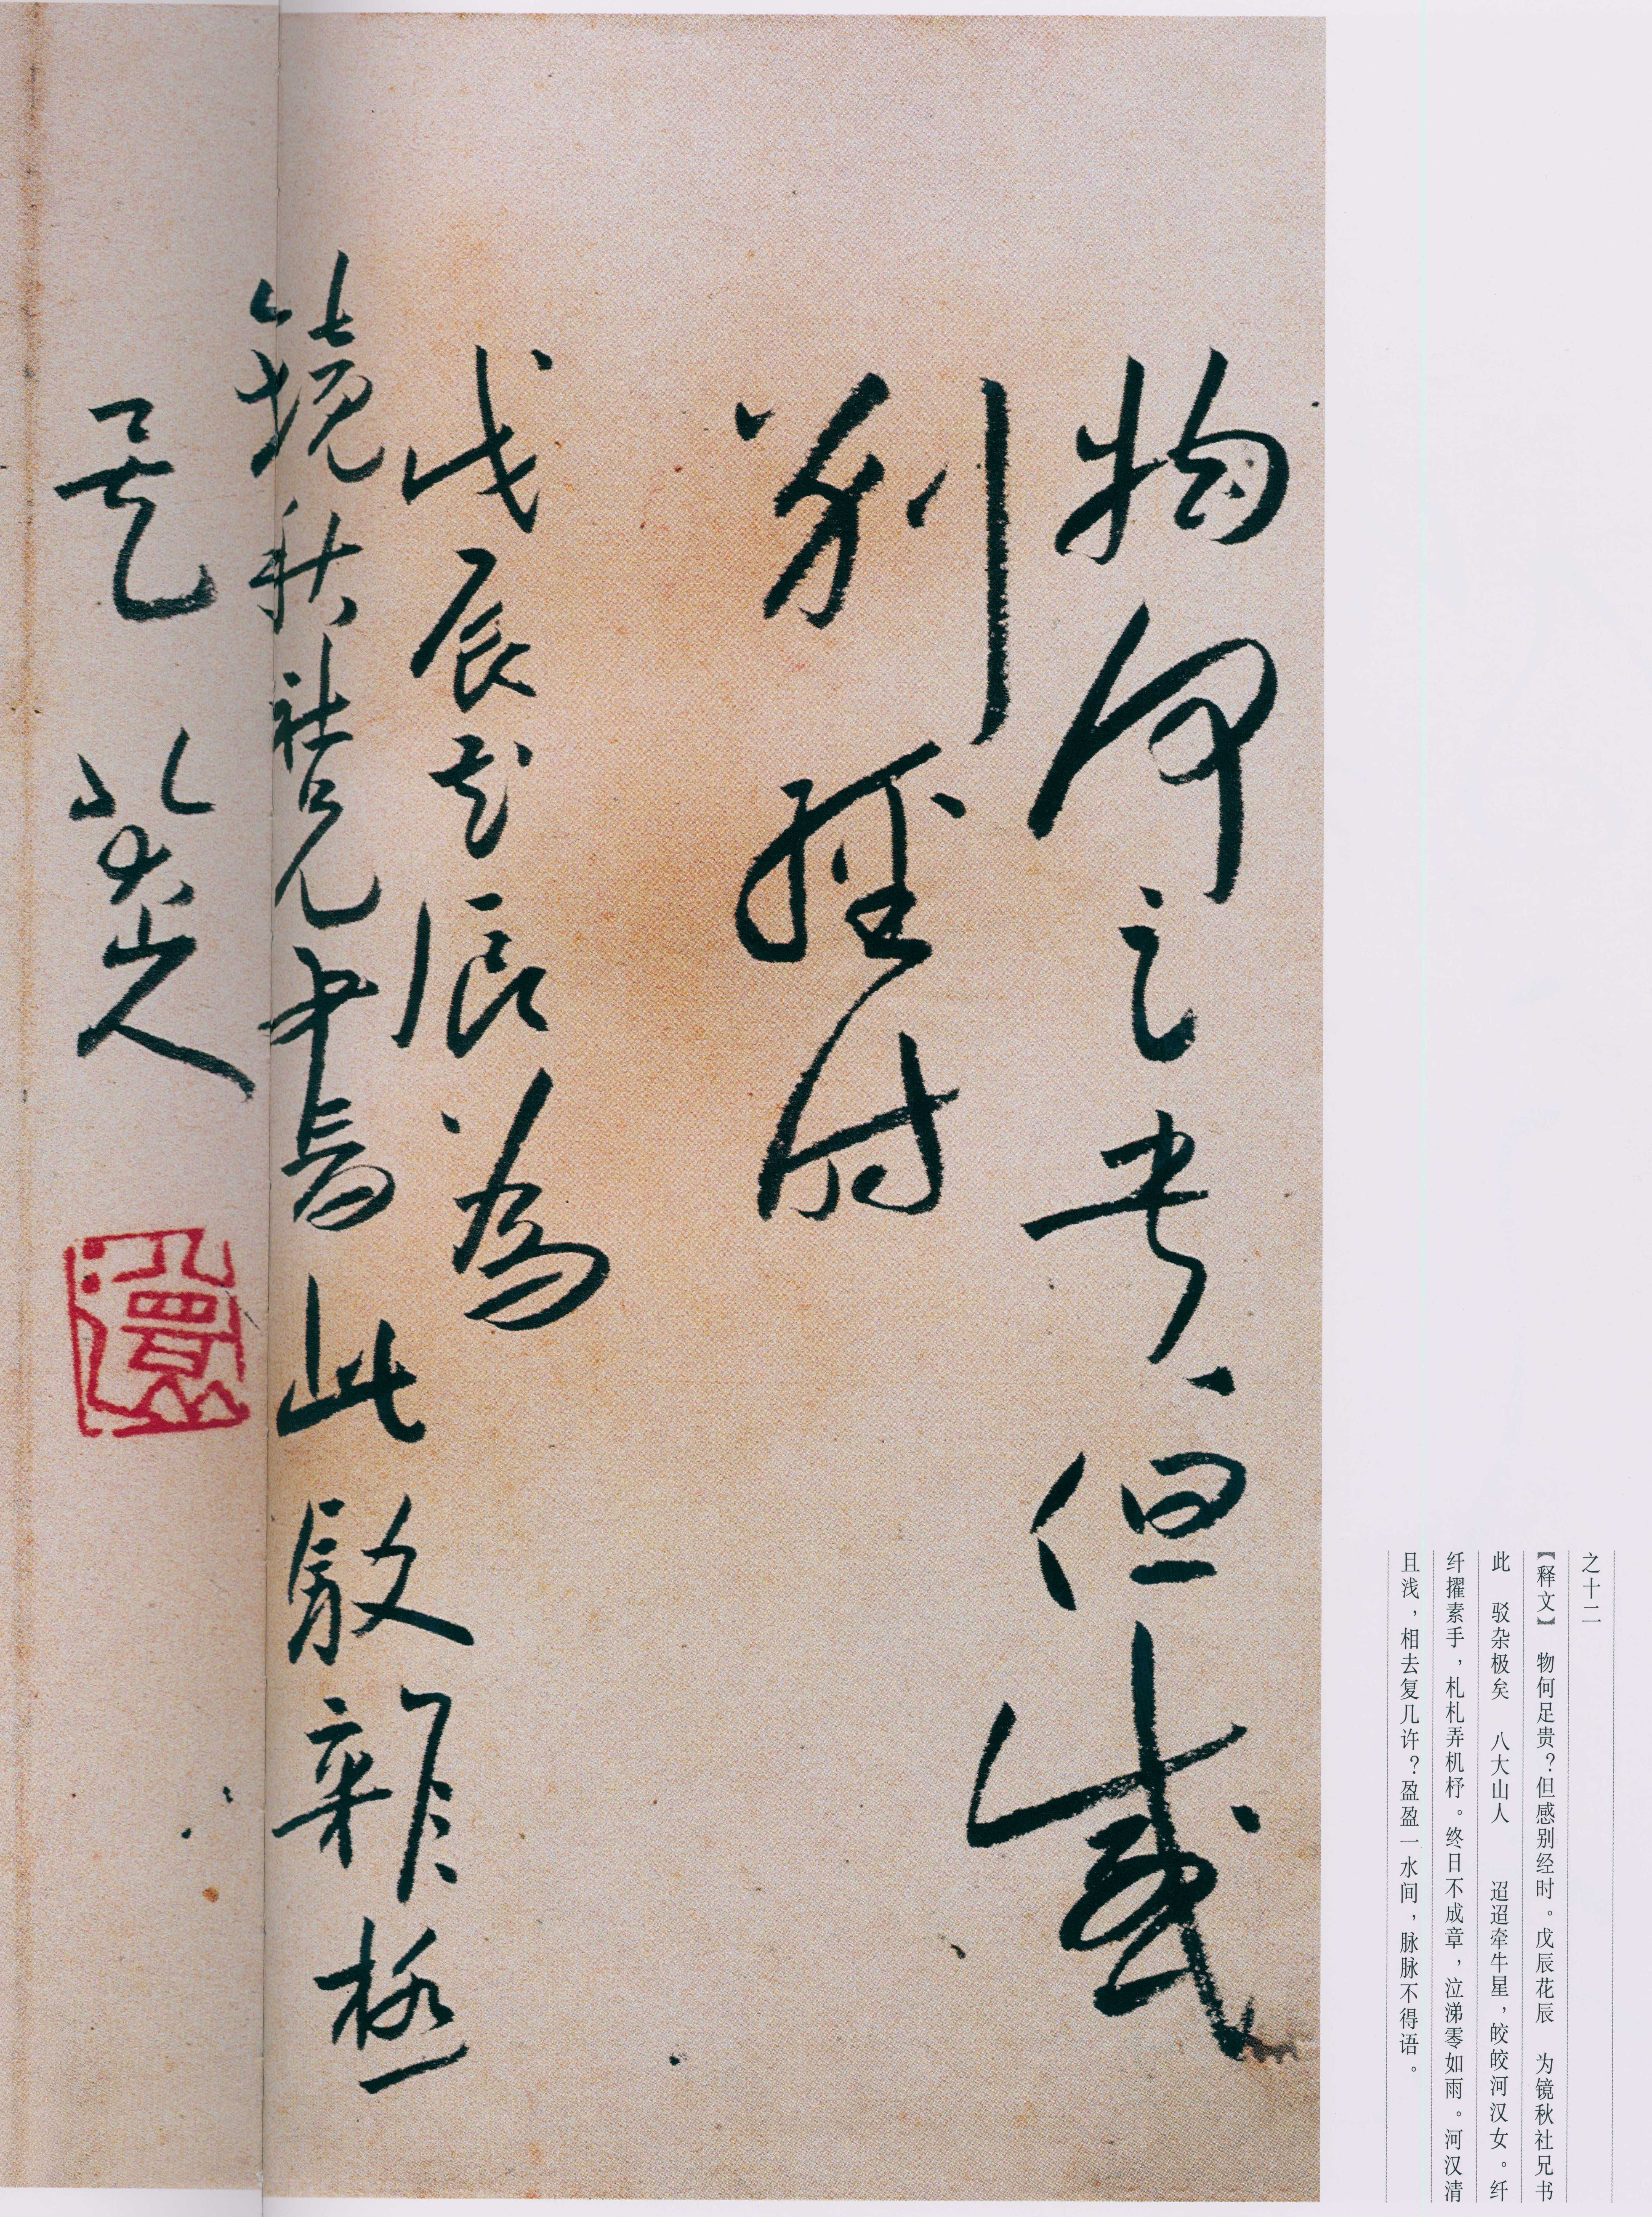 之十二
【释文】 物何足贵？但感别经时。戊辰花辰 为镜秋社兄书
此 驳杂极矣 八大山人 迢迢牵牛星，皎皎河汉女。纤
纤擢素手，札札弄机杼。终日不成章，泣涕零如雨。河汉清
且浅，相去复几许？盈盈一水间，脉脉不得语。
物何足貴但感
別經時
戊辰花辰為
鏡秋社兄書此駁雜極
矣 八大山人